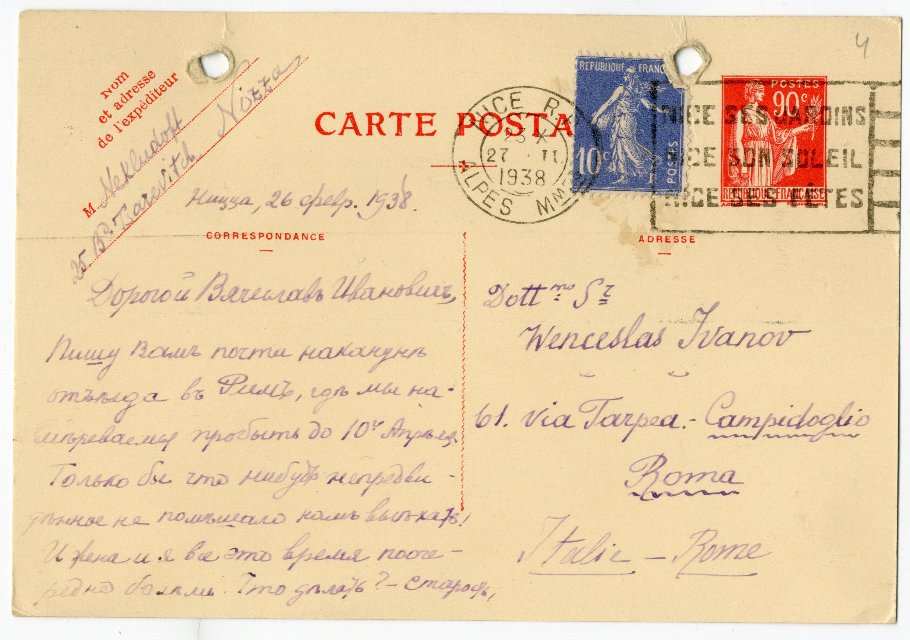 4
Nom
et adresse
de l'expéditeur
M Nekludoff
25 Bd Tzarevitch Nizza
CARTE POSTA
REPUBLIQUE FRANC
10c
POSTES
POSTES
90c
REPUBLIQUE FRANÇAISE
NICE R.P.
27 II
1938
ALPES MMES
NICE SES JARDINS
NICE SON SOLEIL
NICE SES FETES
Ницца, 26 февр. 1938.
CORRESPONDANCE
Дорогой Вячеславъ Ивановичъ,
Пишу Вамъ почти наканунѣ
отъѣзда въ Римъ, гдѣ мы на-
мѣреваемся пробыть до 10го Апрѣля.
Только бы что нибудь непредви-
дѣнное не помѣшало намъ выѣхать!
И жена и я все это время пооче-
редно болѣли. Что дѣлать? – старость,
ADRESSE
Dott mo Sr
Wenceslas Ivanov
61. via Tarpea - Campidoglio
Roma
Italie – Rome